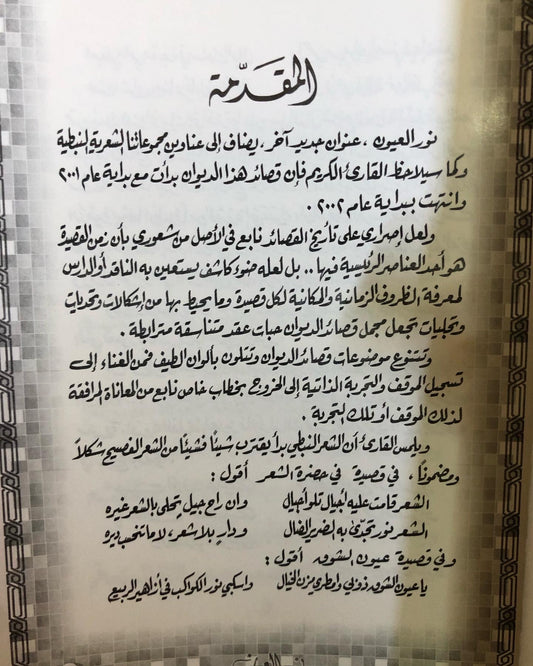 المقدّمة
نور العيون ، عنوان جديد آخر ، يضاف إلى عناوين مجموعاتنا الشعرية النبطية
وكما سيلاحظ القارئ الكريم فإن قصائد هذا الديوان بدأت مع بداية عام ٢٠٠١
وانتهت ببداية عام ٢٠٠٢ .
ولعل إصراري على تأريخ القصائد نابع في الأصل من شعوري بأن زمن القصيدة
هو أحد العناصر الرئيسية فيها .. بل لعله ضوء كاشف يستعين به الناقد أو الدارس
لمعرفة الظروف الزمانية والمكانية لكل قصيدة وما يحيط بها من إشكالات وتحديات
وتجليات تجعل مجمل قصائد الديوان حبات عقد متناسقة مترابطة .
وتتنوع موضوعات قصائد الديوان وتتلون بألوان الطيف فمن الغناء إلى
تسجيل الموقف والتجربة الذاتية إلى الخروج بخطاب خاص نابع من المعاناة المرافقة
لذلك الموقف أو تلك التجربة .
ويلمس القارئ أن الشعر النبطي بدأ يقترب شيئاً فشيئاً من الشعر الفصيح شكلاً
ومضموناً ، في قصيدة في حضرة الشعر أقول :
الشعر قامت عليه أجيال تلو أجيال وان راح جيل يتحلى بالشعر غيره
الشعر نور تحدّى به الضرير الضال ودارٍ بلا شعر ، لا ما تنحسب ديره
وفي قصيدة عيون الشوق أقول :
يا عيون الشوق ذوبي وامطري مزن الخيال واسكبي نور الكواكب في أزاهير الربيع